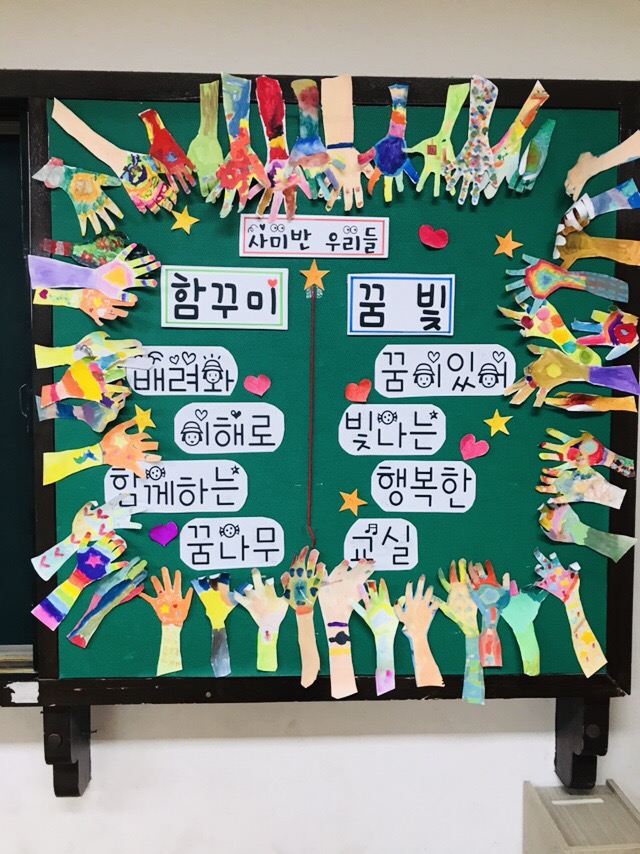 사미반 우리들
함꾸미
배려와
이해로
함께하는
꿈나무
꿈 빛
꿈이있어
빛나는
행복한
교실